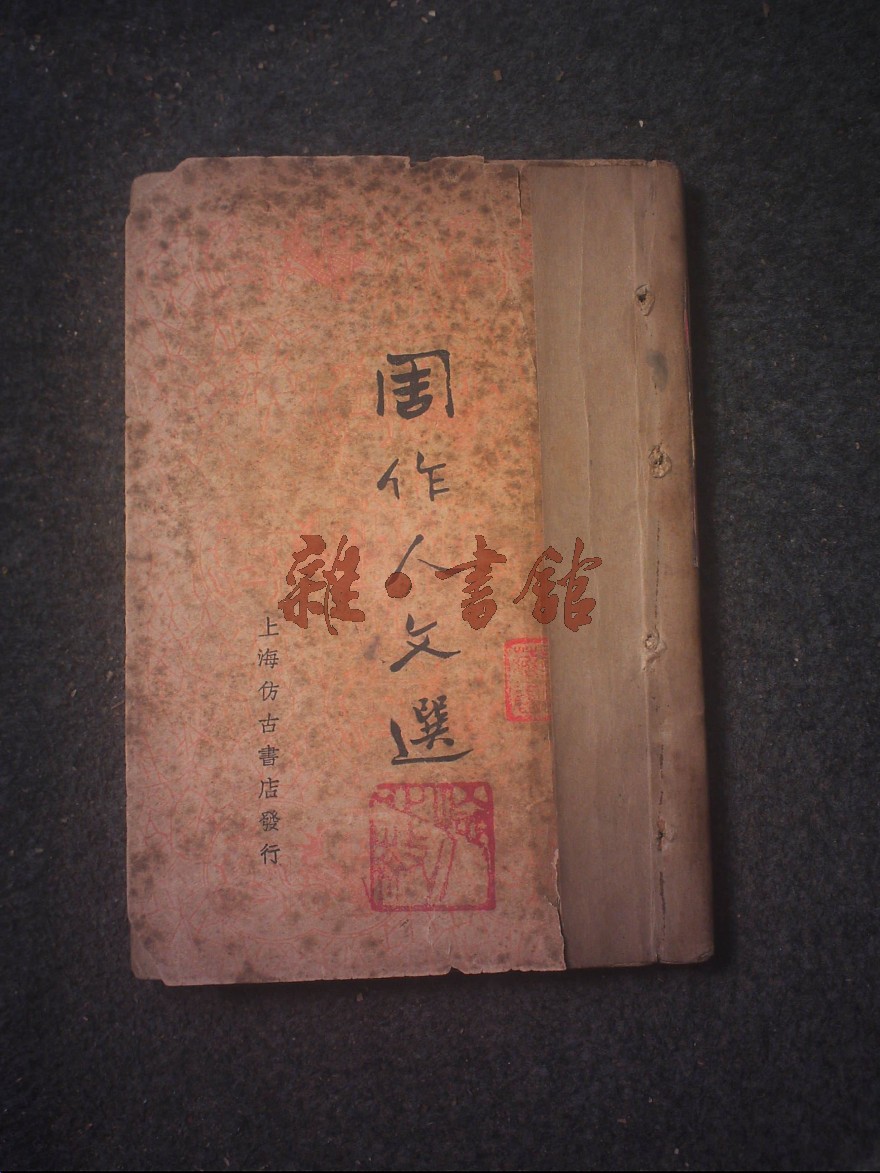 周作人文選
上海仿古書店發行
雜·書館